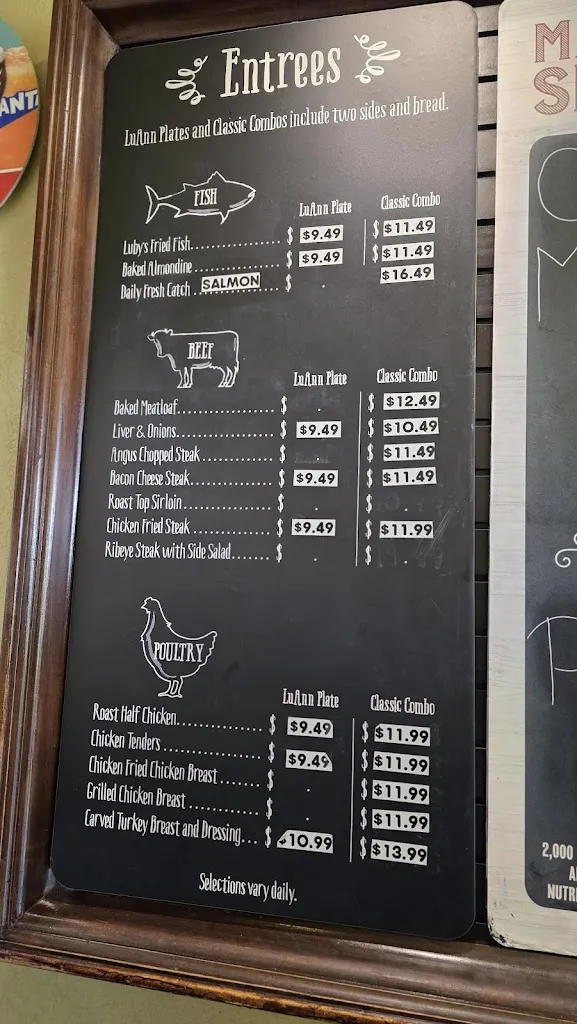 Entrees
LuAnn Plates and Classic Combos include two sides and bread.
FISH
LuAnn Plate Classic Combo
Luby's Fried Fish.................... $ $9.49 $ $11.49
Baked Almondine.................... $ $9.49 $ $11.49
Daily Fresh Catch .. SALMON .... $ . $16.49
BEEF
LuAnn Plate Classic Combo
Baked Meatloaf.................... $ . $ $12.49
Liver & Onions.................... $ $9.49 $ $10.49
Angus Chopped Steak............... $ . $ $11.49
Bacon Cheese Steak................ $ $9.49 $ $11.49
Roast Top Sirloin................. $ . $ .
Chicken Fried Steak............... $ $9.49 $ $11.99
Ribeye Steak with Side Salad....... $ . $ .
POULTRY
LuAnn Plate Classic Combo
Roast Half Chicken................ $ $9.49 $ $11.99
Chicken Tenders .................. $ $9.49 $ $11.99
Chicken Fried Chicken Breast....... $ . $ $11.99
Grilled Chicken Breast ............ $ . $ $11.99
Carved Turkey Breast and Dressing... $ 10.99 $ $13.99
Selections vary daily.
2,000
NUTR